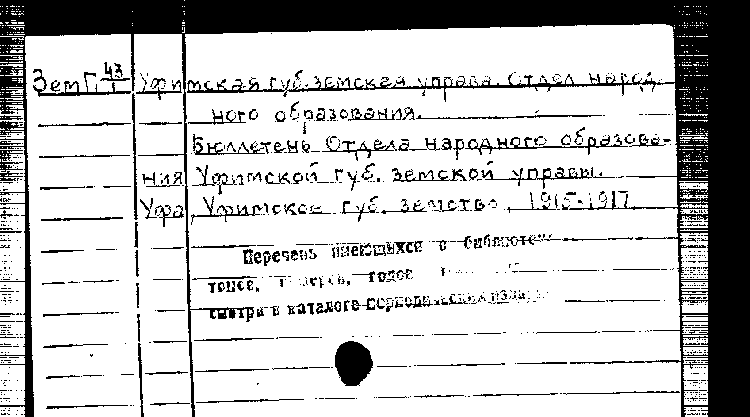 ЗемГ 43/1 Уфимская губ. земская управа. Отдел народ-
ного образования.
Бюллетень Отдела народного образова-
ния Уфимской губ. земской управы.
Уфа, Уфимское губ. земство, 1915-1917
Перечень имеющихся в библиоте
годов
смотри в каталоге